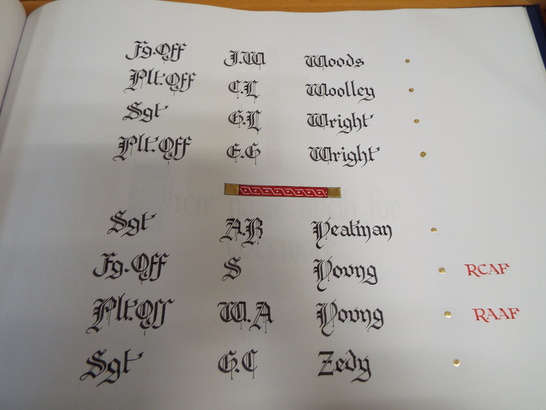 Fg.Off J.W Woods
Plt.Off C.L Woolley
Sgt G.L Wright
Plt.Off E.G Wright
Sgt A.R Yeatman
Fg.Off S Young RCAF
Plt.Off W.A Young RAAF
Sgt G.C Zedy